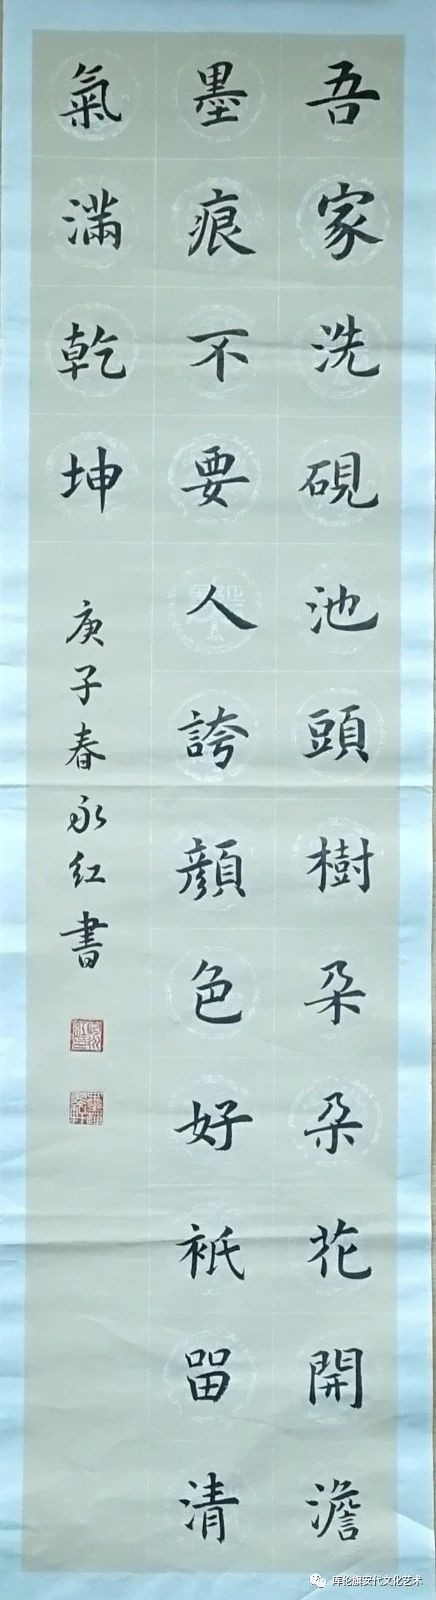 吾家洗硯池頭樹朵朵花開澹
墨痕不要人誇顔色好衹留清
氣滿乾坤
庚子春永红書
库伦旗安代文化艺术